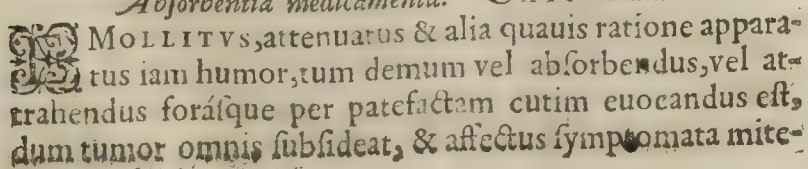 Absorbentia medicamenta.
EMOLLITVS, attenuatus & alia quauis ratione appara-
tus iam humor, tum demum vel abſorbendus, vel at-
trahendus foráſque per patefactam cutim euocandus eſt,
dum tumor omnis ſubſideat, & affectus ſymptomata mite-